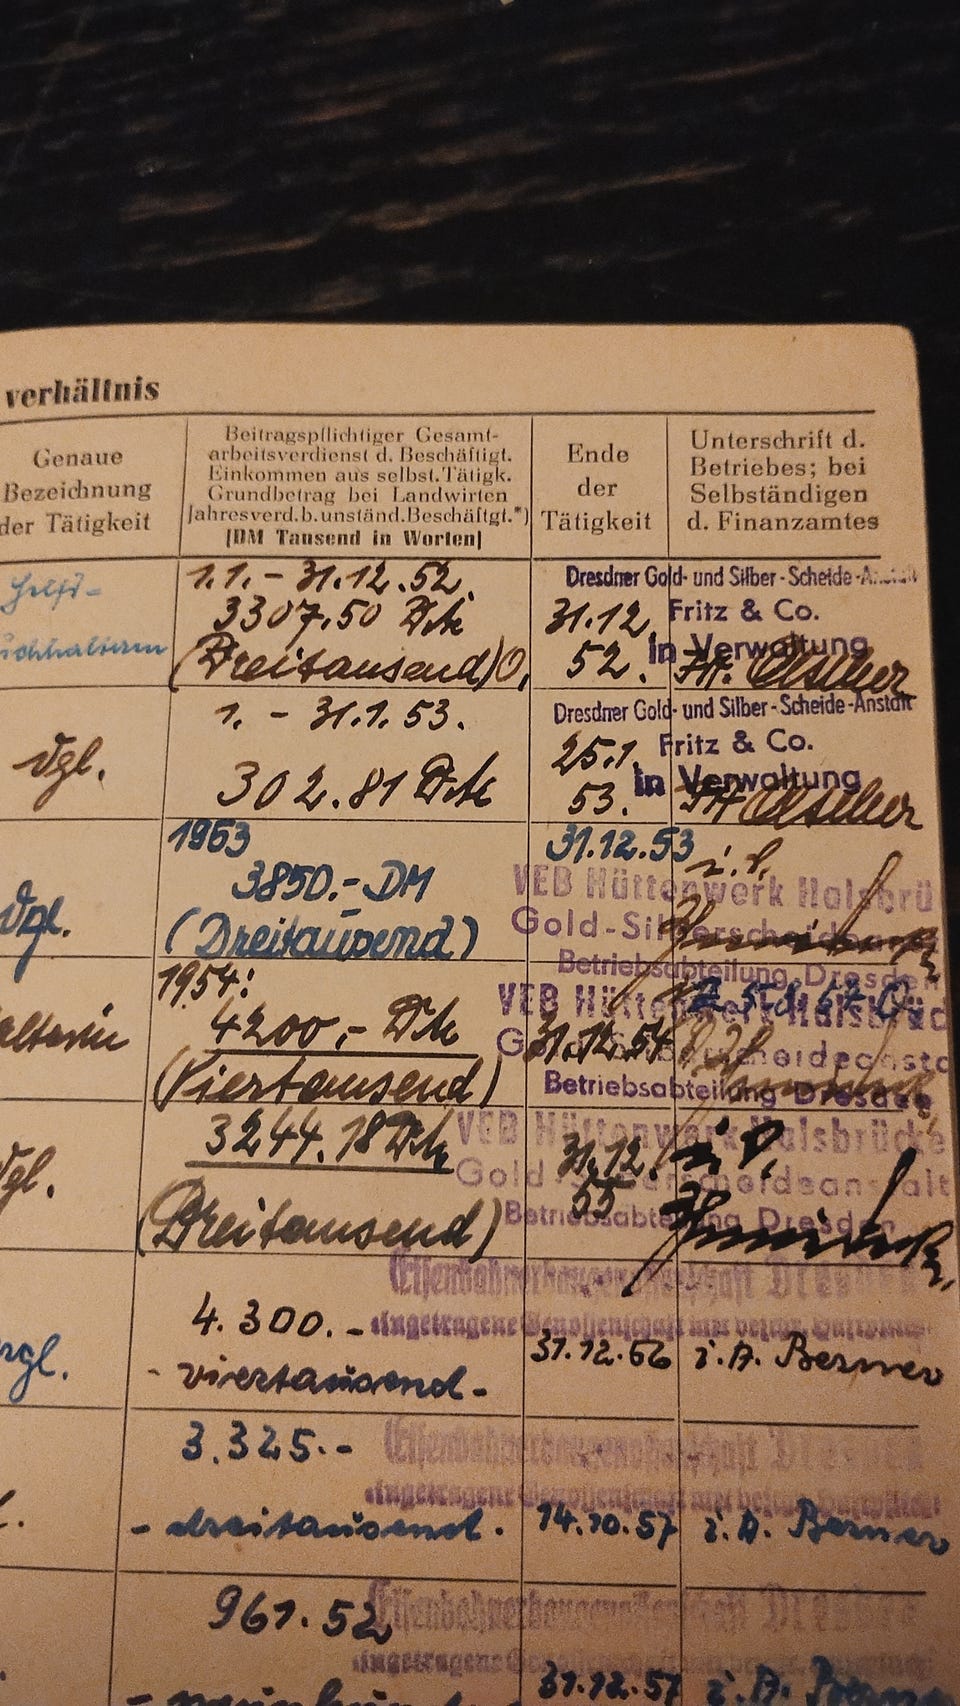 verhältnis
Genaue
Bezeichnung
der Tätigkeit
Beitragspflichtiger Gesamt-
arbeitsverdienst d. Beschäftigt.
Einkommen aus selbst. Tätigk.
Grundbetrag bei Landwirten
Jahresverd. b. unständ. Beschäftgt.*)
(DM Tausend in Worten)
Ende
der
Tätigkeit
Unterschrift d.
Betriebes; bei
Selbständigen
d. Finanzamtes
1.1. - 31.12.52.
3307,50 DM
(Dreitausend)
31.12.
52.
Dresdner Gold- und Silber-Scheide-Anstalt
Fritz & Co.
in Verwaltung
vgl.
1. - 31.1.53.
302.81 DM
25.1.
53.
Dresdner Gold- und Silber-Scheide-Anstalt
Fritz & Co.
in Verwaltung
vgl.
1953
3850.- DM
(Dreitausend)
31.12.53
VEB Hüttenwerk Halsbrü
Gold-Silberscheideanst
Betriebsabteilung Dresden
1954:
4200,- DM
(Viertausend)
31.12.54
VEB Hüttenwerk Halsbrück
Gold-Silberscheideansta
Betriebsabteilung Dresden
vgl.
3244.18 DM
(Dreitausend)
31.12.
55
VEB Hüttenwerk Halsbrücke
Gold-Silberscheideanstalt
Betriebsabteilung Dresden
vgl.
4.300.-
- viertausend -
31.12.56
i.A. Berner
3.325.-
- dreitausend.
14.10.57
i.A. Berner
961.52
31.12.57
i.A.